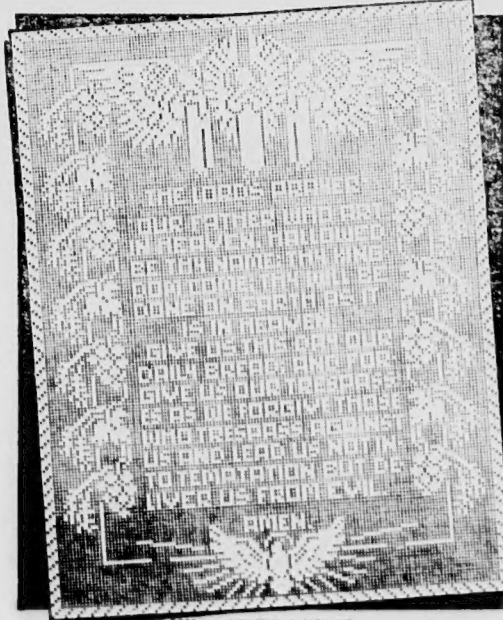 THE LORDS PRAYER
OUR FATHER WHO ART
IN HEAVEN, HALLOWED
BE THY NAME. THY KING
DOM COME. THY WILL BE
DONE ON EARTH AS IT
IS IN HEAVEN.
GIVE US THIS DAY OUR
DAILY BREAD, AND FOR
GIVE US OUR TRESPASS
ES AS WE FORGIVE THOSE
WHO TRESPASS AGAINST
US AND LEAD US NOT IN
TO TEMPTATION BUT DE
LIVER US FROM EVIL
AMEN.